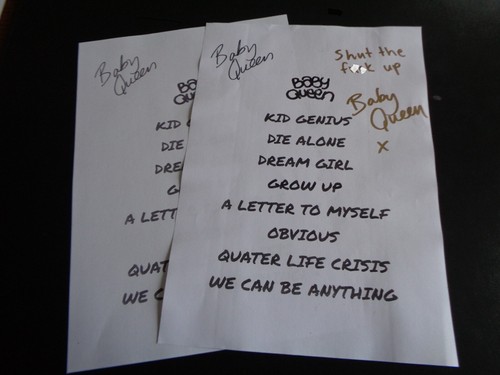 Baby
Queen
KID G
DIE
DRE
G
A LETT
QUAT
WE C
Baby
Queen
Shut the
f ck up
Baby
Queen
x
BABY
QUEEN
KID GENIUS
DIE ALONE
DREAM GIRL
GROW UP
A LETTER TO MYSELF
OBVIOUS
QUATER LIFE CRISIS
WE CAN BE ANYTHING